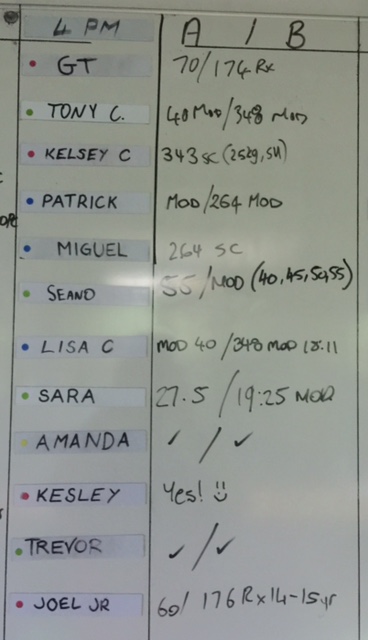 4 PM A / B
GT 70/174 Rx
TONY C. 40 MOD/348 MOD
KELSEY C 343 SC (252g, SU)
PATRICK MOD/264 MOD
MIGUEL 264 SC
SEANO 55/MOD (40,45,50,55)
LISA C MOD 40/348 MOD 18:11
SARA 27.5/19:25 MOD
AMANDA ✓/✓
KESLEY Yes! ☺
TREVOR ✓/✓
JOEL JR 60/ 176 Rx 14-15yr